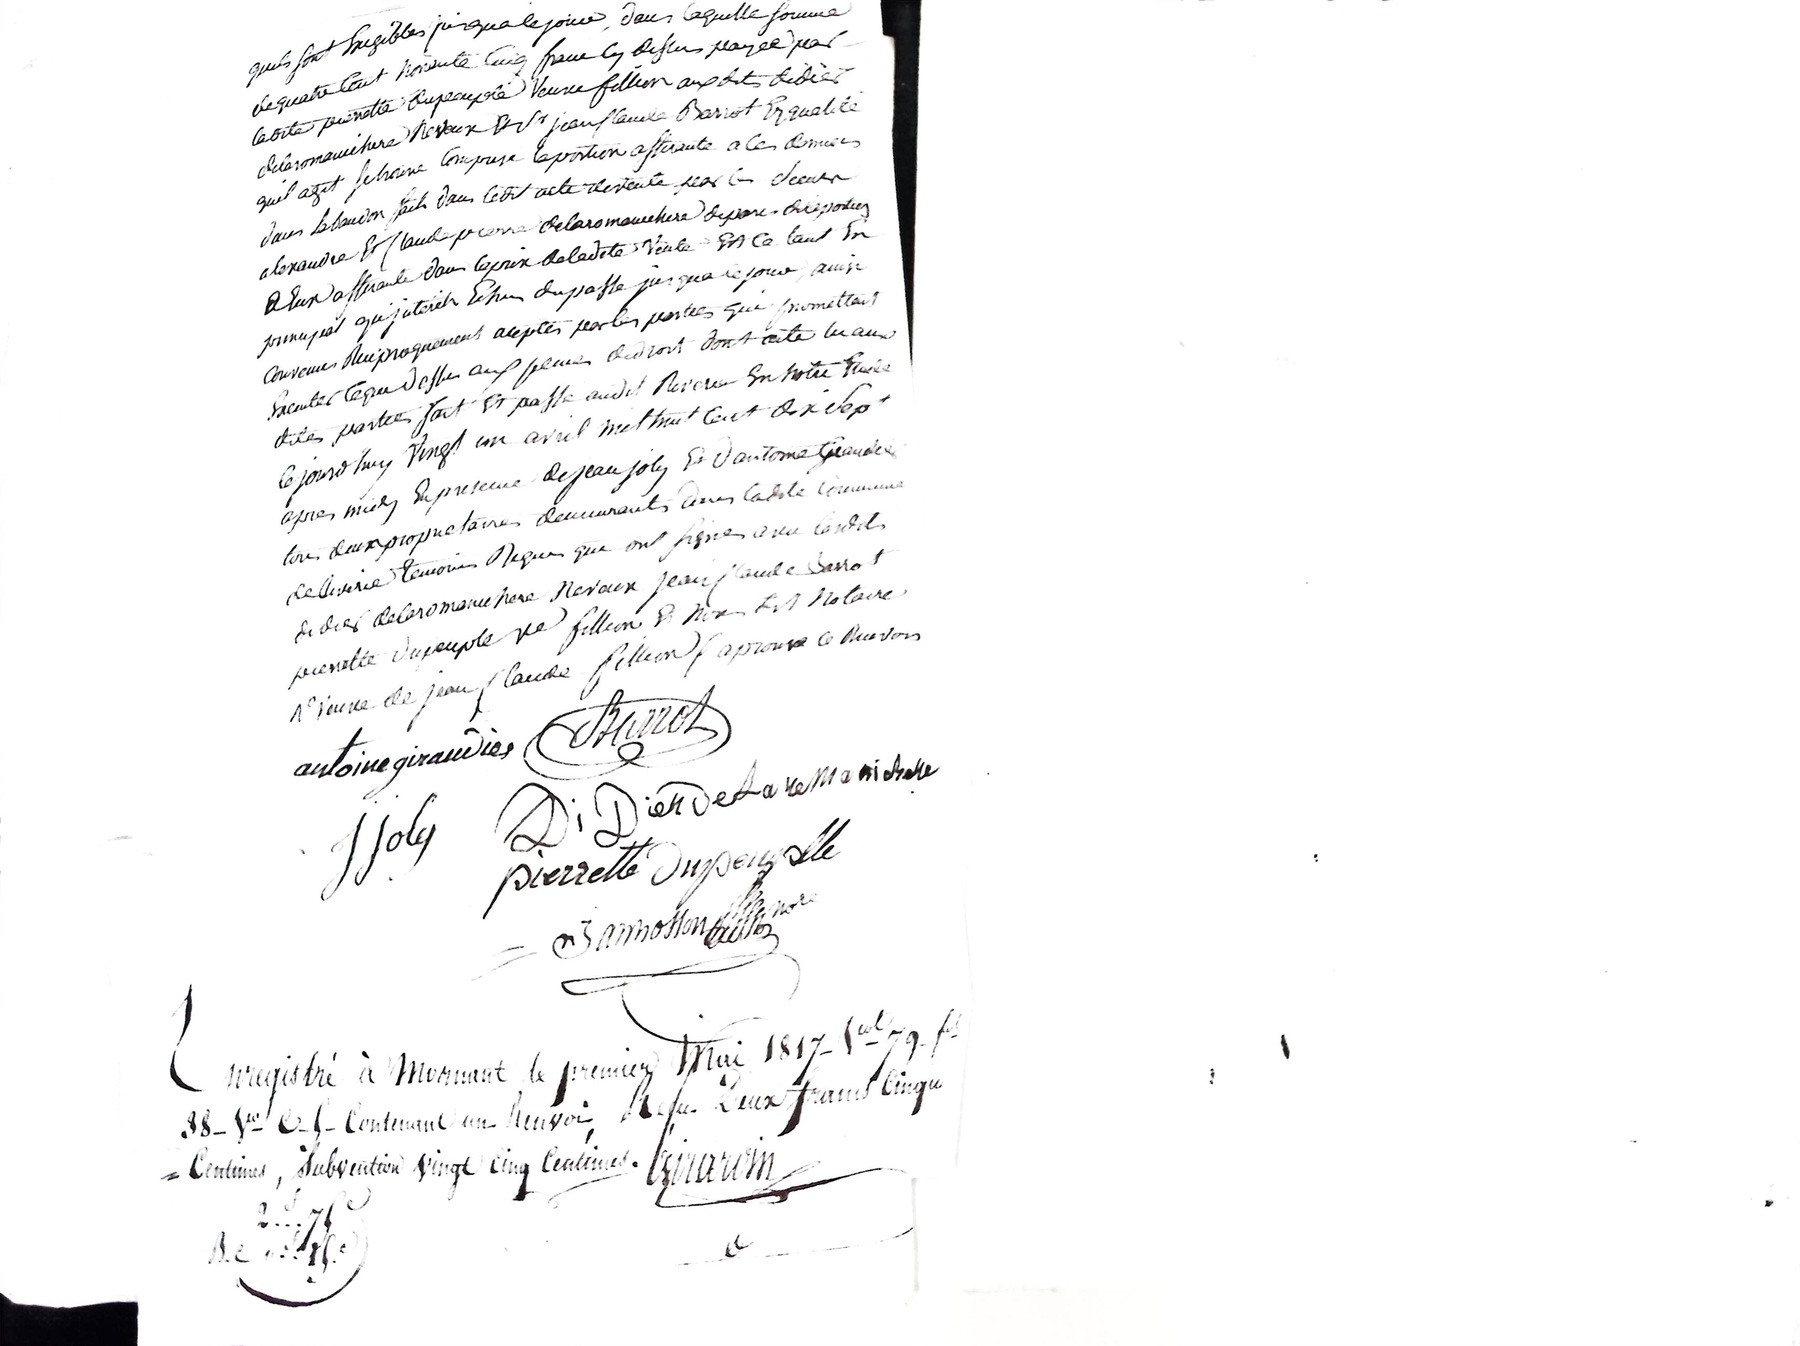 quils sont Exigibles jusqua cejour, dans laquelle somme
dequatre Cent Nonante Cinq franc Cy dessus payée par
ladite pierrette Dupeuple Veuve fillion aux dits didier
delaromanichere Neveux Et Sr jean Claude Barrot Enqualité
quil agit se trouve Comprise laportion afférante a ces derniers
dans labandon fait dans ledit acte devente par les Sieurs
alexandre Et Claude pierre delaromanichere
a Eux afférante dans leprix deladite Vente Et Ce tant En
principal qu'jnterêts Echus dupassé jusqua cejour, ainsi
Convenus Réciproquement aceptés par les parties qui promettent
Executer ceque dessus aux peines dedroit dont acte lu aux
dites parties fait Et passé audit Riverie En notre Etude
lejourd'huy Vingt un avril mil huit Cent dix sept
apres midy En presence de jean joly Et d'antoine Giraudier
tous deux proprietaires demeurants dans ladite Commune
deRiverie temoins Requis qui ont signés avec lesdits
didier delaromanichere Neveux jean Claude Barrot
pierrette dupeuple ve fillion Et Nous dit Notaire
Veuve de jean Claude fillion japrouve ce Renvois
antoine giraudier Barrot
J Joly DiDier De La re Manichere
pierrette Dupeuplle
nore
Enregistré à Mornant le premier Mai 1817. Vol. 79. fol.
38. Vo. C. 5. Contenant un Renvoi, Reçu Deux francs Cinqu
= Centimes, Subvention vingt cinq Centimes. Girardin